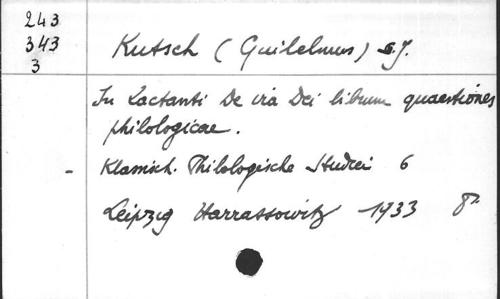 243
343
3
Kutsch (Guilelmus) S.J.
In Lactanti De ira Dei librum quaestiones
philologicae.
- Klassisch. Philologische Studien 6
Leipzig Harrassowitz 1933 8º